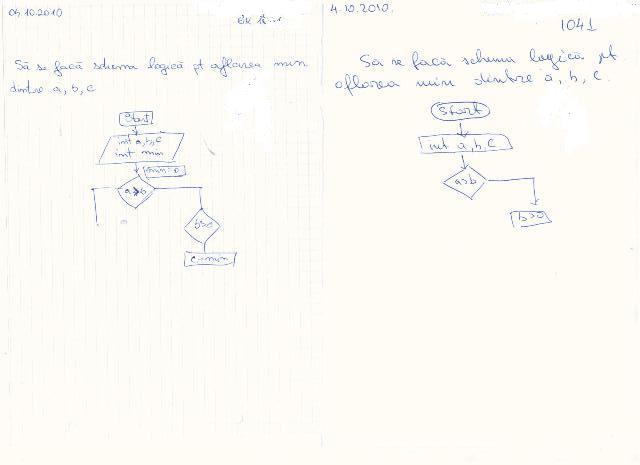 04.10.2010
Să se facă schema logică pt aflarea min
dintre a, b, c
Start
int a, b, c
int min
min=0
a>b
b>c
c=min
4.10.2010.
1041
Să se facă schema logică pt
aflarea min dintre a, b, c.
Start
int a, b, c
a>b